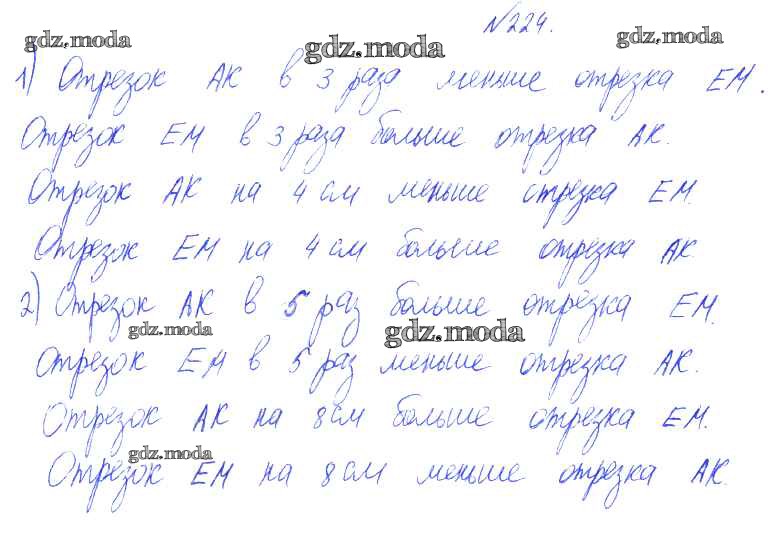 №224.
gdz.moda gdz.moda gdz.moda
1) Отрезок АК в 3 раза меньше отрезка ЕМ.
Отрезок ЕМ в 3 раза больше отрезка АК.
Отрезок АК на 4 см меньше отрезка ЕМ.
Отрезок ЕМ на 4 см больше отрезка АК.
2) Отрезок АК в 5 раз больше отрезка ЕМ.
gdz.moda gdz.moda
Отрезок ЕМ в 5 раз меньше отрезка АК.
Отрезок АК на 8 см больше отрезка ЕМ.
gdz.moda
Отрезок ЕМ на 8 см меньше отрезка АК.